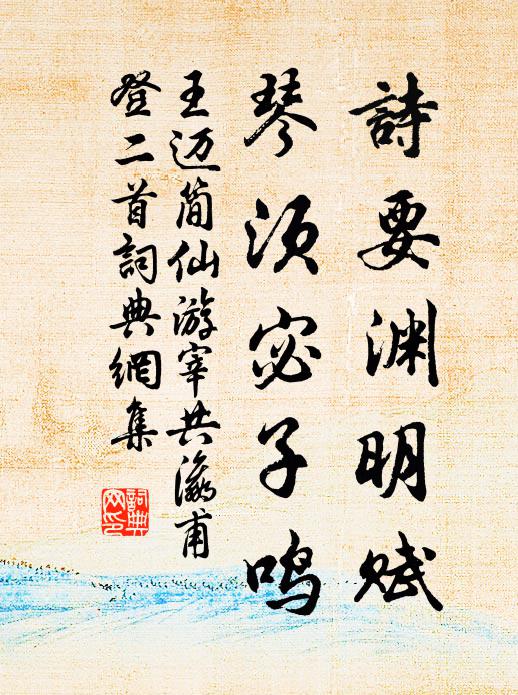 詩要渊明賦
琴须宓子鳴
王迈简仙游宰共瀛甫
登二首詞典網集
詞典
网印